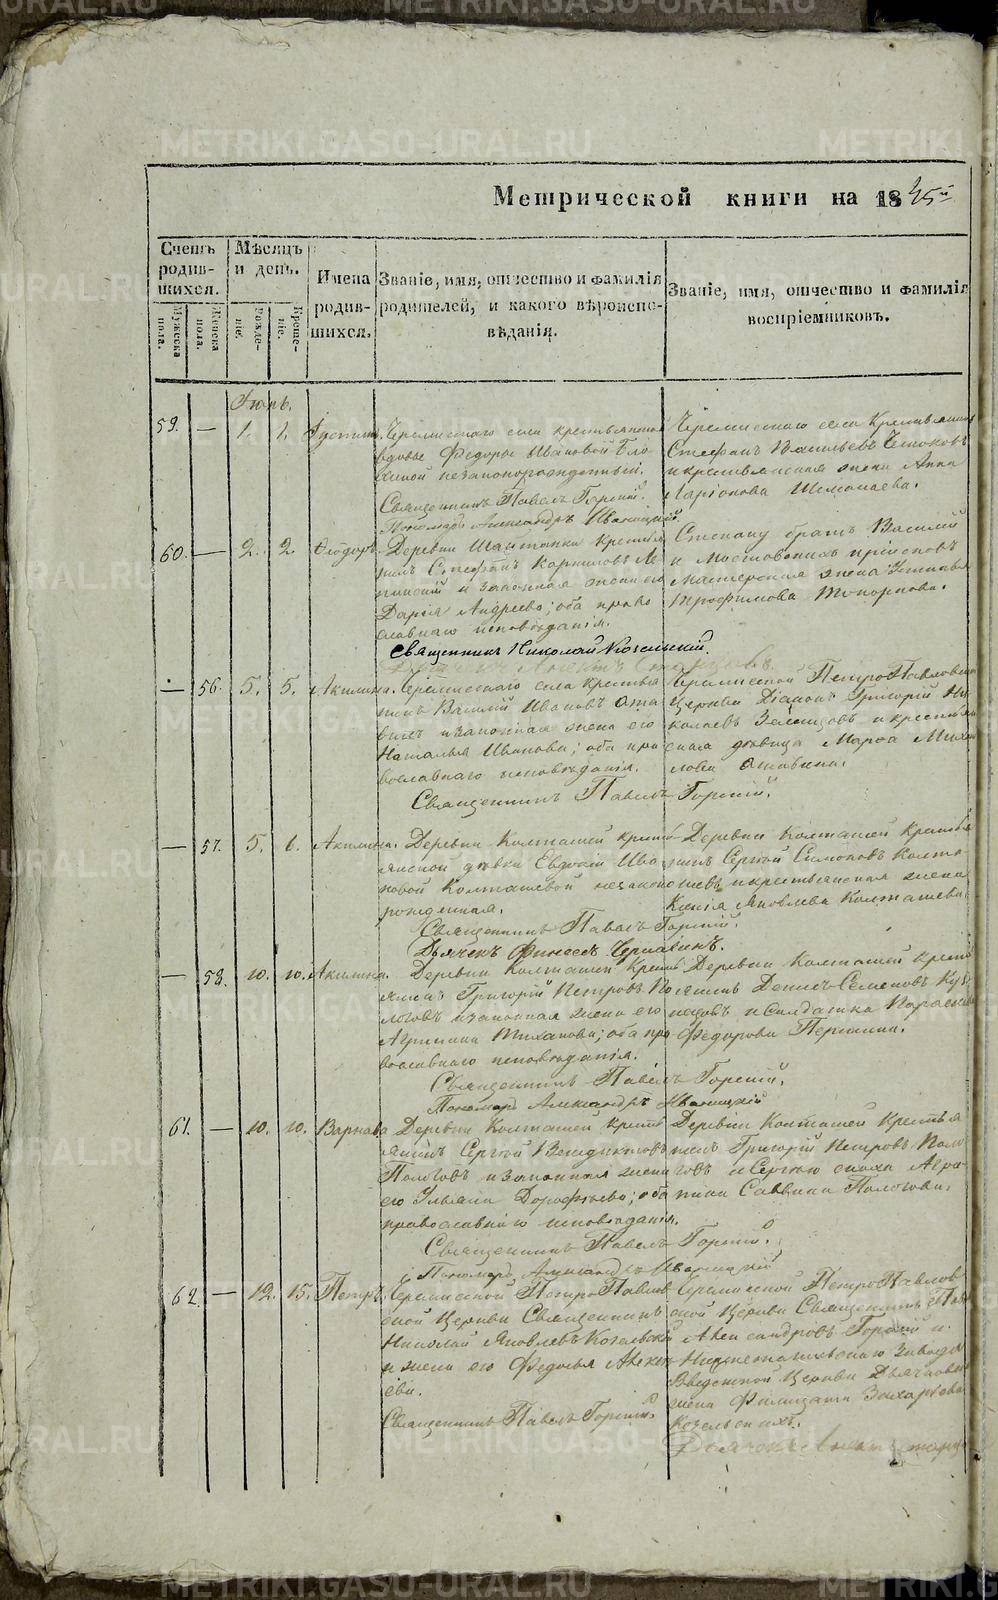 METRIKI.GASO-URAL.RU
Метрической книги на 1845й
Счетъ родившихся.
Мѣсяцъ и день.
Имена родившихся.
Званіе, имя, отчество и фамилія родителей, и какого вѣроисповѣданія.
Званіе, имя, отчество и фамилія воспріемниковъ.
Мужеска пола.
Женска пола.
Рожденіе.
Крещеніе.
Іюнь.
59. — 1. 1. Іустинъ.
Черемисскаго села крестьянской
вдовы Федоры Ивановой
незаконорожденный.
Священникъ Павелъ Горный.
Пономарь Александръ Иваницкій.
Черемисскаго села Крестьянинъ
Стефанъ Васильевъ
и крестьянская жена Анна
Ларіонова Шемонаева.
60. — 2. 2. Ѳеодоръ.
Деревни Шайтанки крестья
нинъ Стефанъ Корниловъ
и законная жена его
Дарья Андреева; оба право
славнаго исповѣданія.
Священникъ Николай Козельскій.
Степану братъ Василій
и Мостовскихъ пріисковъ
Мастерская жена Устинья
Трофимова Топоркова.
— 56. 5. 5. Акилина.
Черемисскаго села крестья
нинъ Василій Ивановъ
и законная жена его
Наталья Иванова; оба пра
вославнаго исповѣданія.
Священникъ Павелъ Горный.
Черемисской Петро Павловской
Церкви Діаконъ Григорій Ни
колаевъ и крестьян
ская дѣвица Марѳа Михай
лова
— 57. 5. 6. Акилина.
Деревни Колташей кресть
янской дѣвки Евдокіи Ива
новой Колташевой незаконо
рожденная.
Священникъ Павелъ Горный.
Дьячекъ Финеесъ Чернавинъ.
Деревни Колташей Крестья
нинъ Сергій Симоновъ Колта
шевъ и крестьянская жена
Ксенія Яковлева Колташева.
— 58. 10. 10. Акилина.
Деревни Колташей Кресть
янинъ Григорій Петровъ По
логовъ и законная жена его
Агрипина Тиханова; оба пра
вославнаго исповѣданія.
Священникъ Павелъ Горный.
Пономарь Александръ Иваницкій
Деревни Колташей Кресть
янинъ Денисъ Семеновъ
и Солдатка Параскева
Федорова Першина.
61. — 10. 10. Варнава
Деревни Колташей Кресть
янинъ Сергій Венедиктовъ
Пологовъ и законная жена
его Ульяна Дорофѣева; оба
православнаго исповѣданія.
Священникъ Павелъ Горный.
Пономарь Александръ Иваницкій
Деревни Колташей Крестья
нинъ Григорій Петровъ Поло
говъ и Сергію сноха Агри
пина Саввина Пологова.
62. — 12. 15. Петръ.
Черемисской Петро Павлов
ской Церкви Священникъ
Николай Яковлевъ Козельскій
и жена его Федосья Алексѣ
ева.
Священникъ Павелъ Горный.
Черемисской Петро Павлов
ской Церкви Священникъ Павелъ
Александровъ Горный и
Нижнетагильскаго Завода
Введенской Церкви Дьячкова
жена Филицата Захарьева
Козельскихъ.